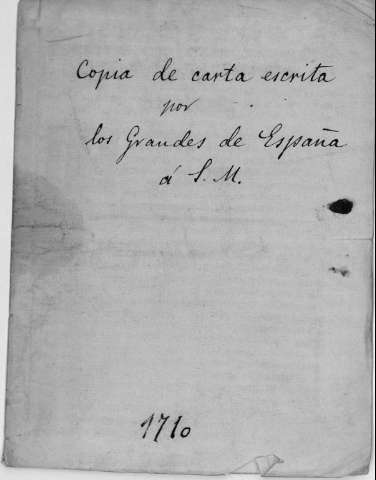 Copia de carta escrita
por
los Grandes de España
á S. M.
1710